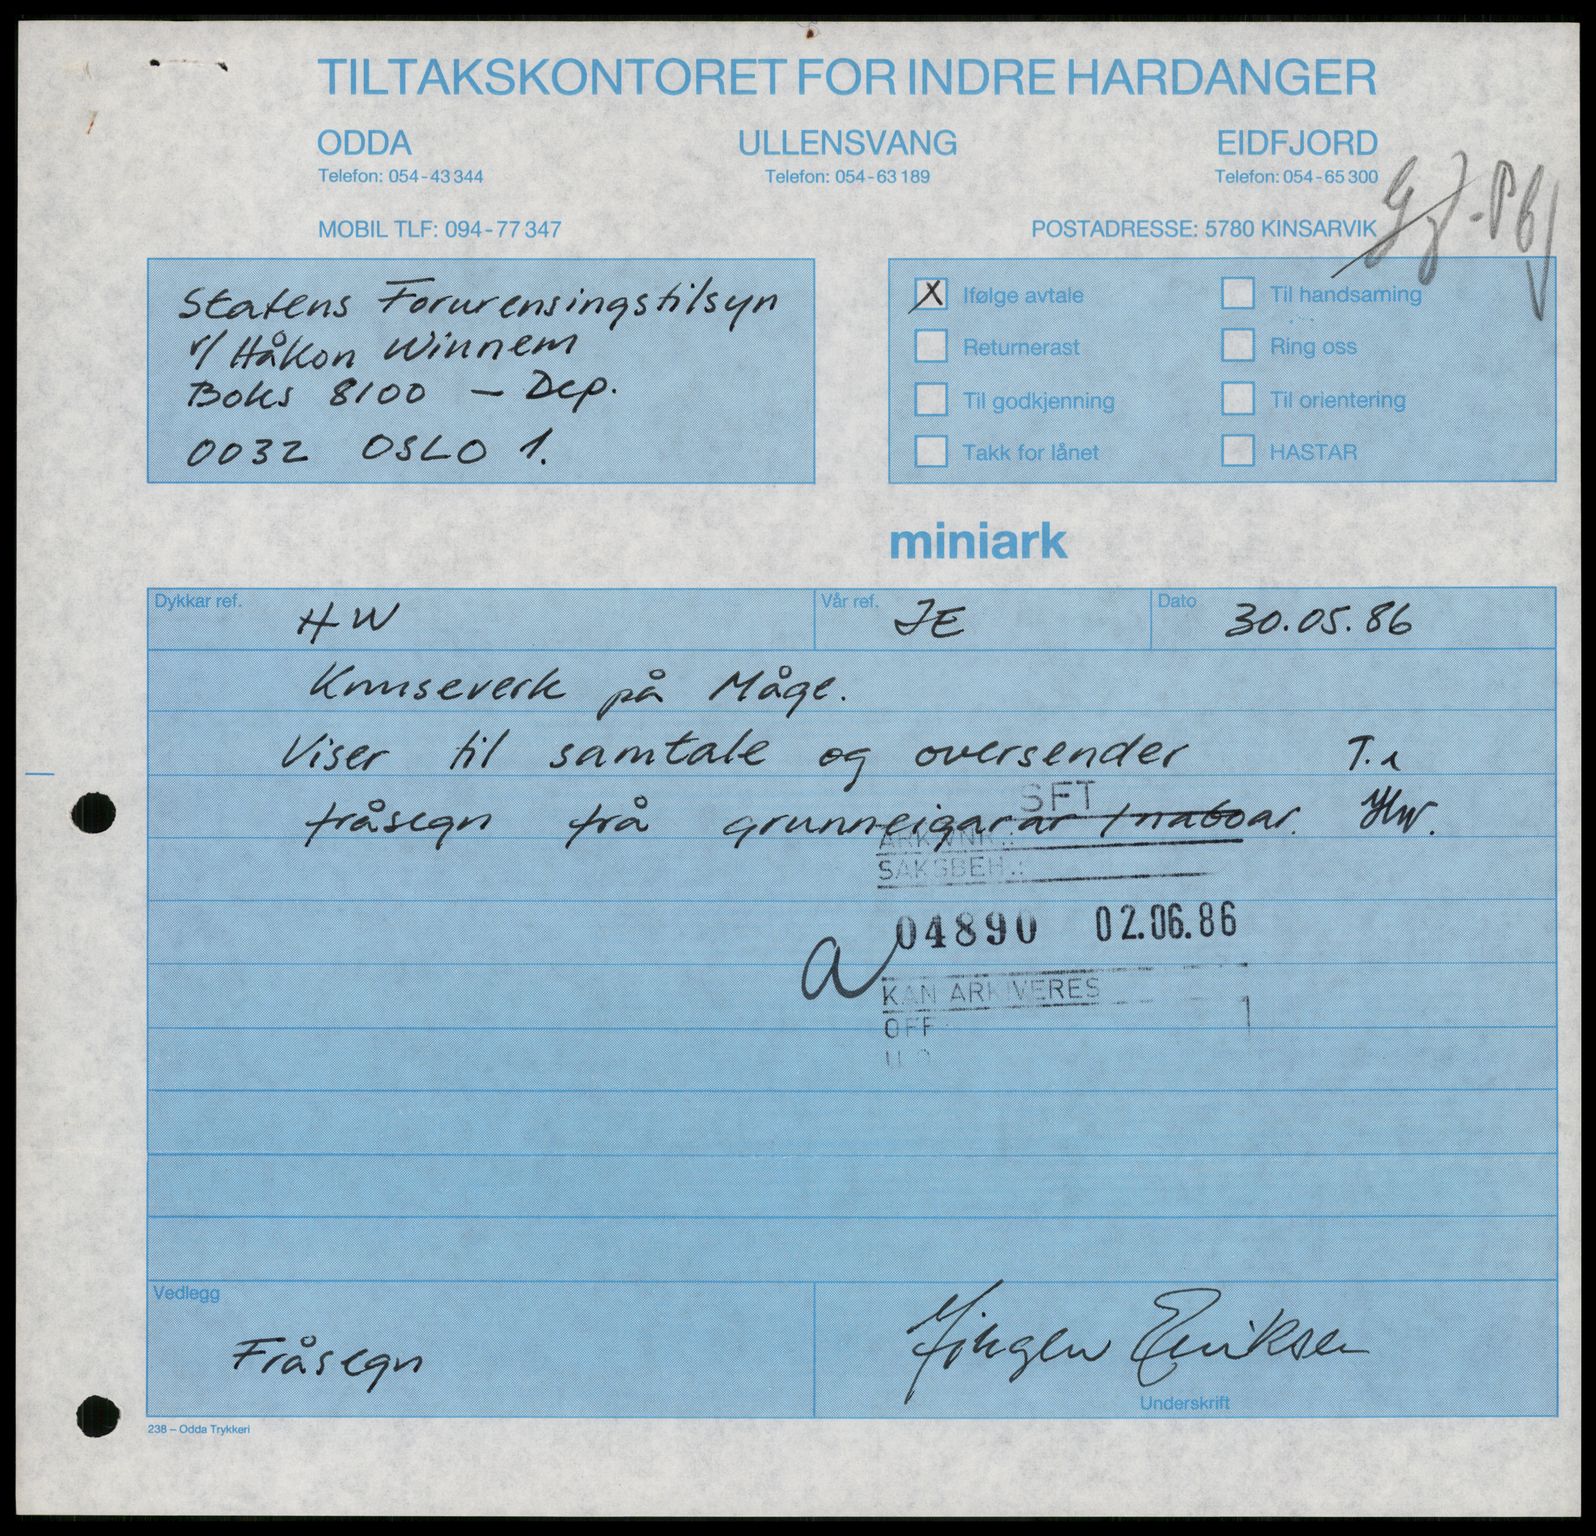 TILTAKSKONTORET FOR INDRE HARDANGER
ODDA ULLENSVANG EIDFJORD
Telefon: 054-43344 Telefon: 054-63189 Telefon: 054-65300
MOBIL TLF: 094-77347 POSTADRESSE: 5780 KINSARVIK
Statens Forurensingstilsyn
v/ Håkon Winnem
Boks 8100 - Dep.
0032 OSLO 1.
X Ifølge avtale Til handsaming
Returnerast Ring oss
Til godkjenning Til orientering
Takk for lånet HASTAR
miniark
Dykkar ref. HW Vår ref. JE Dato 30.05.86
Knuseverk på Måge.
Viser til samtale og oversender T.
fråsegn frå grunneigarar / naboar. HW.
SFT
ARKIVNR.:
SAKSBEH.:
04890 02.06.86
a
KAN ARKIVERES
OFF
Vedlegg
Fråsegn
Jørgen Eriksen
Underskrift
238 – Odda Trykkeri